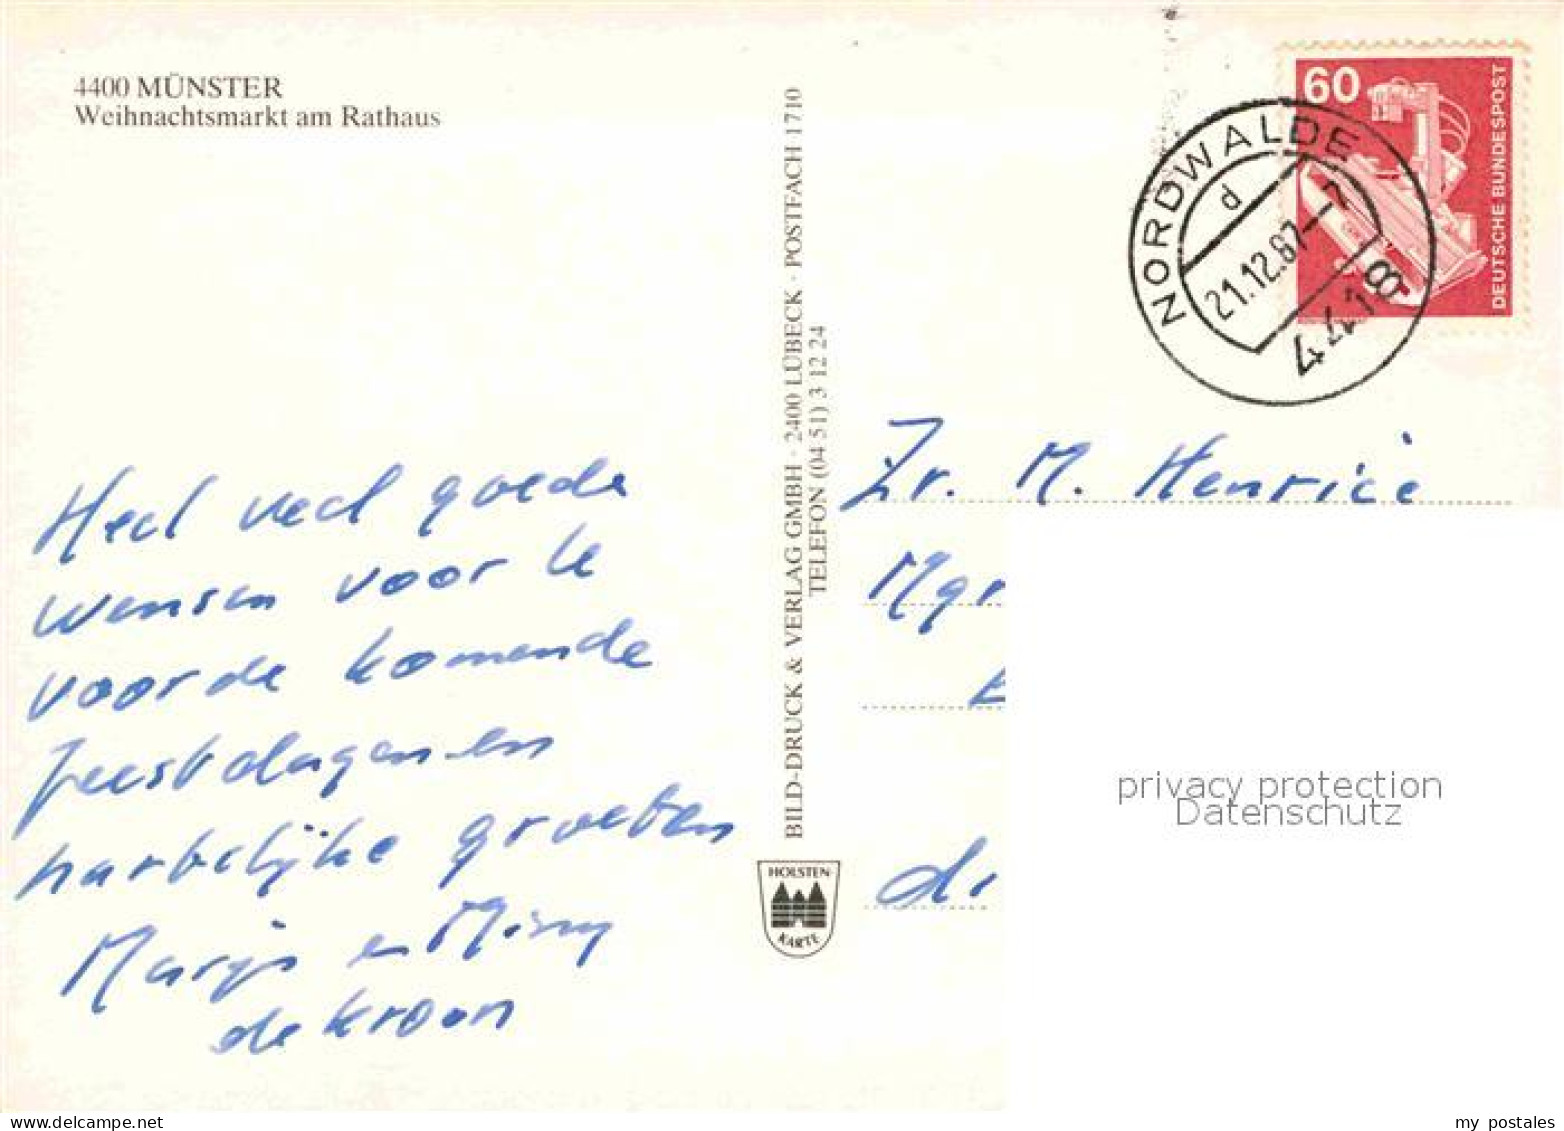 4400 MÜNSTER
Weihnachtsmarkt am Rathaus
Heel veel goede
wensen voor te
voor de komende
feestdagen en
hartelijke groeten
Marijs en
de Kroon
BILD-DRUCK & VERLAG GMBH · 2400 LÜBECK · POSTFACH 1710
TELEFON (04 51) 3 12 24
HOLSTEN-
KARTE
60
DEUTSCHE BUNDESPOST
NORDWALDE
d
21.12.87-7
4418
Zr. M. Henrice
Mgr
privacy protection
Datenschutz
delcampe.net
my_postales